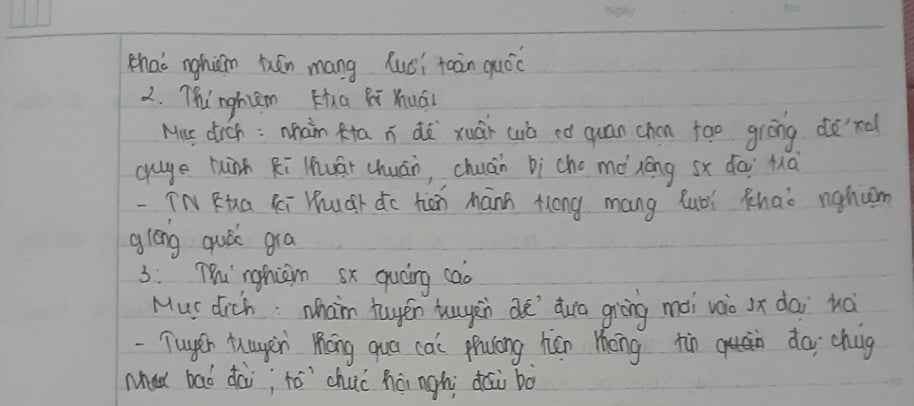 khảo nghiệm trên mạng lưới toàn quốc
2. Thí nghiệm ktra kĩ thuật
Mục đích : nhằm ktra n~ đề xuất của cơ quan chọn tạo giống để xđ
quy trình kĩ thuật chuẩn, chuẩn bị cho mở rộng sx đại trà
- TN ktra kĩ thuật đc tiến hành trong mạng lưới khảo nghiệm
giống quốc gia
3. Thí nghiệm sx quảng cáo
Mục đích : nhằm tuyên truyền để đưa giống mới vào sx đại trà
- Tuyên truyền thông qua các phương tiện thông tin đại chúng
báo đài ; tổ chức hội nghị đầu bờ